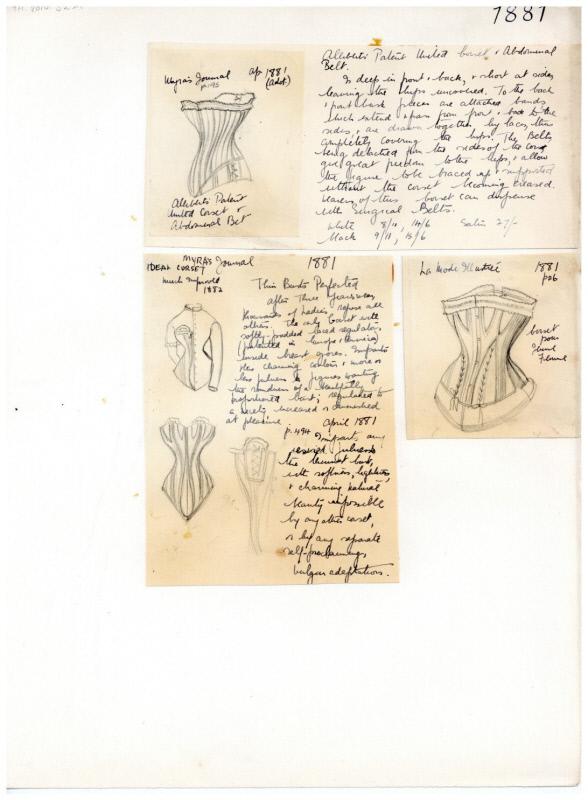 1881
Myra's Journal
Ap. 1881
(Advt.)
p. 195
Alliberts Patent
United Corset &
Abdominal Belt
Alliberts Patent United Corset & Abdominal
Belt.
Is deep in front & back, & short at sides
leaving the hips uncovered. To the back
& front busk pieces are attached bands
which extend & pass from front & back to the
sides, & are drawn together by laces, thus
completely covering the hips. The Belts
being detached from the sides of the corset
give great freedom to the hips, & allow
the figure to be braced up & supported
without the corset becoming creased.
Wearers of this corset can dispense
with Surgical Belts.
White 8/11, 14/6 Satin 27/-
Black 9/11, 15/6
MYRA's Journal
1881
IDEAL CORSET
much improved
1882
Thin Busts Perfected
after Three years use,
thousands of Ladies repose all
others. The only Corset with
softly-padded laced regulators
(patented in Europe & America)
inside breast gores. Imparts
the charming contour & more or
less fulness to figures wanting
the roundness of a beautifully
proportioned bust; regulated to
a nicety, increased or diminished
at pleasure.
April 1881
p. 494 Imparts any
desired fulness to
the thinnest bust,
with softness, lightness,
& charming natural
beauty impossible
by any other corset,
or by any separate
self-proclaiming
vulgar adaptations.
La Mode Illustrée
1881
p26
Corset
pour
jeune
Femme